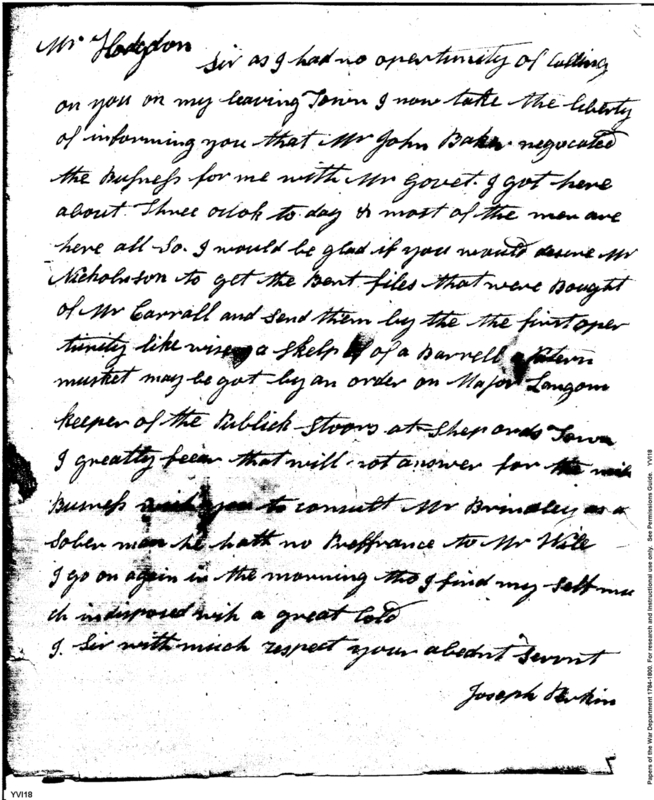 Mr Hodgdon
Sir as I had no opertunity of Calling
on you on my leaving Town I now take the liberty
of informing you that Mr John Baker negocated
the Busness for me with Mr Govet. I got here
about Three oclok to day & most of the men are
here all So. I would be glad if you would desire Mr
Nicholuson to get the Bent files that were Bought
of Mr Carrall and send them by the the first oper
tunity like wise a skelp of a Barrell a Patern
musket may be got by an order on Major Langom
keeper of the Publick Stoors at Shepords Town
I greatly feear that will not answer for the
Busness to consult Mr Brindley as a
Sober man he hath no Preffrance to Mr Wile
I go on again in the morning tho I find my Self mu
ch indisposed wih a great Cold
I. Sir with much respect your abednt Servnt
Joseph Perkin
YVI18
Papers of the War Department 1784-1800. For research and instructional use only. See Permissions Guide. YVI18